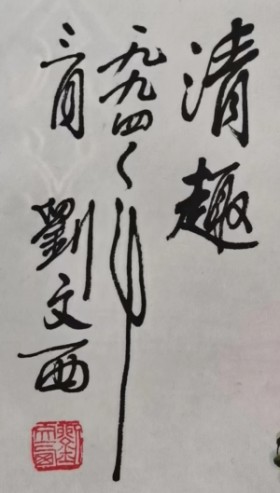 清趣
一九九四年
三月 劉文西
劉文西